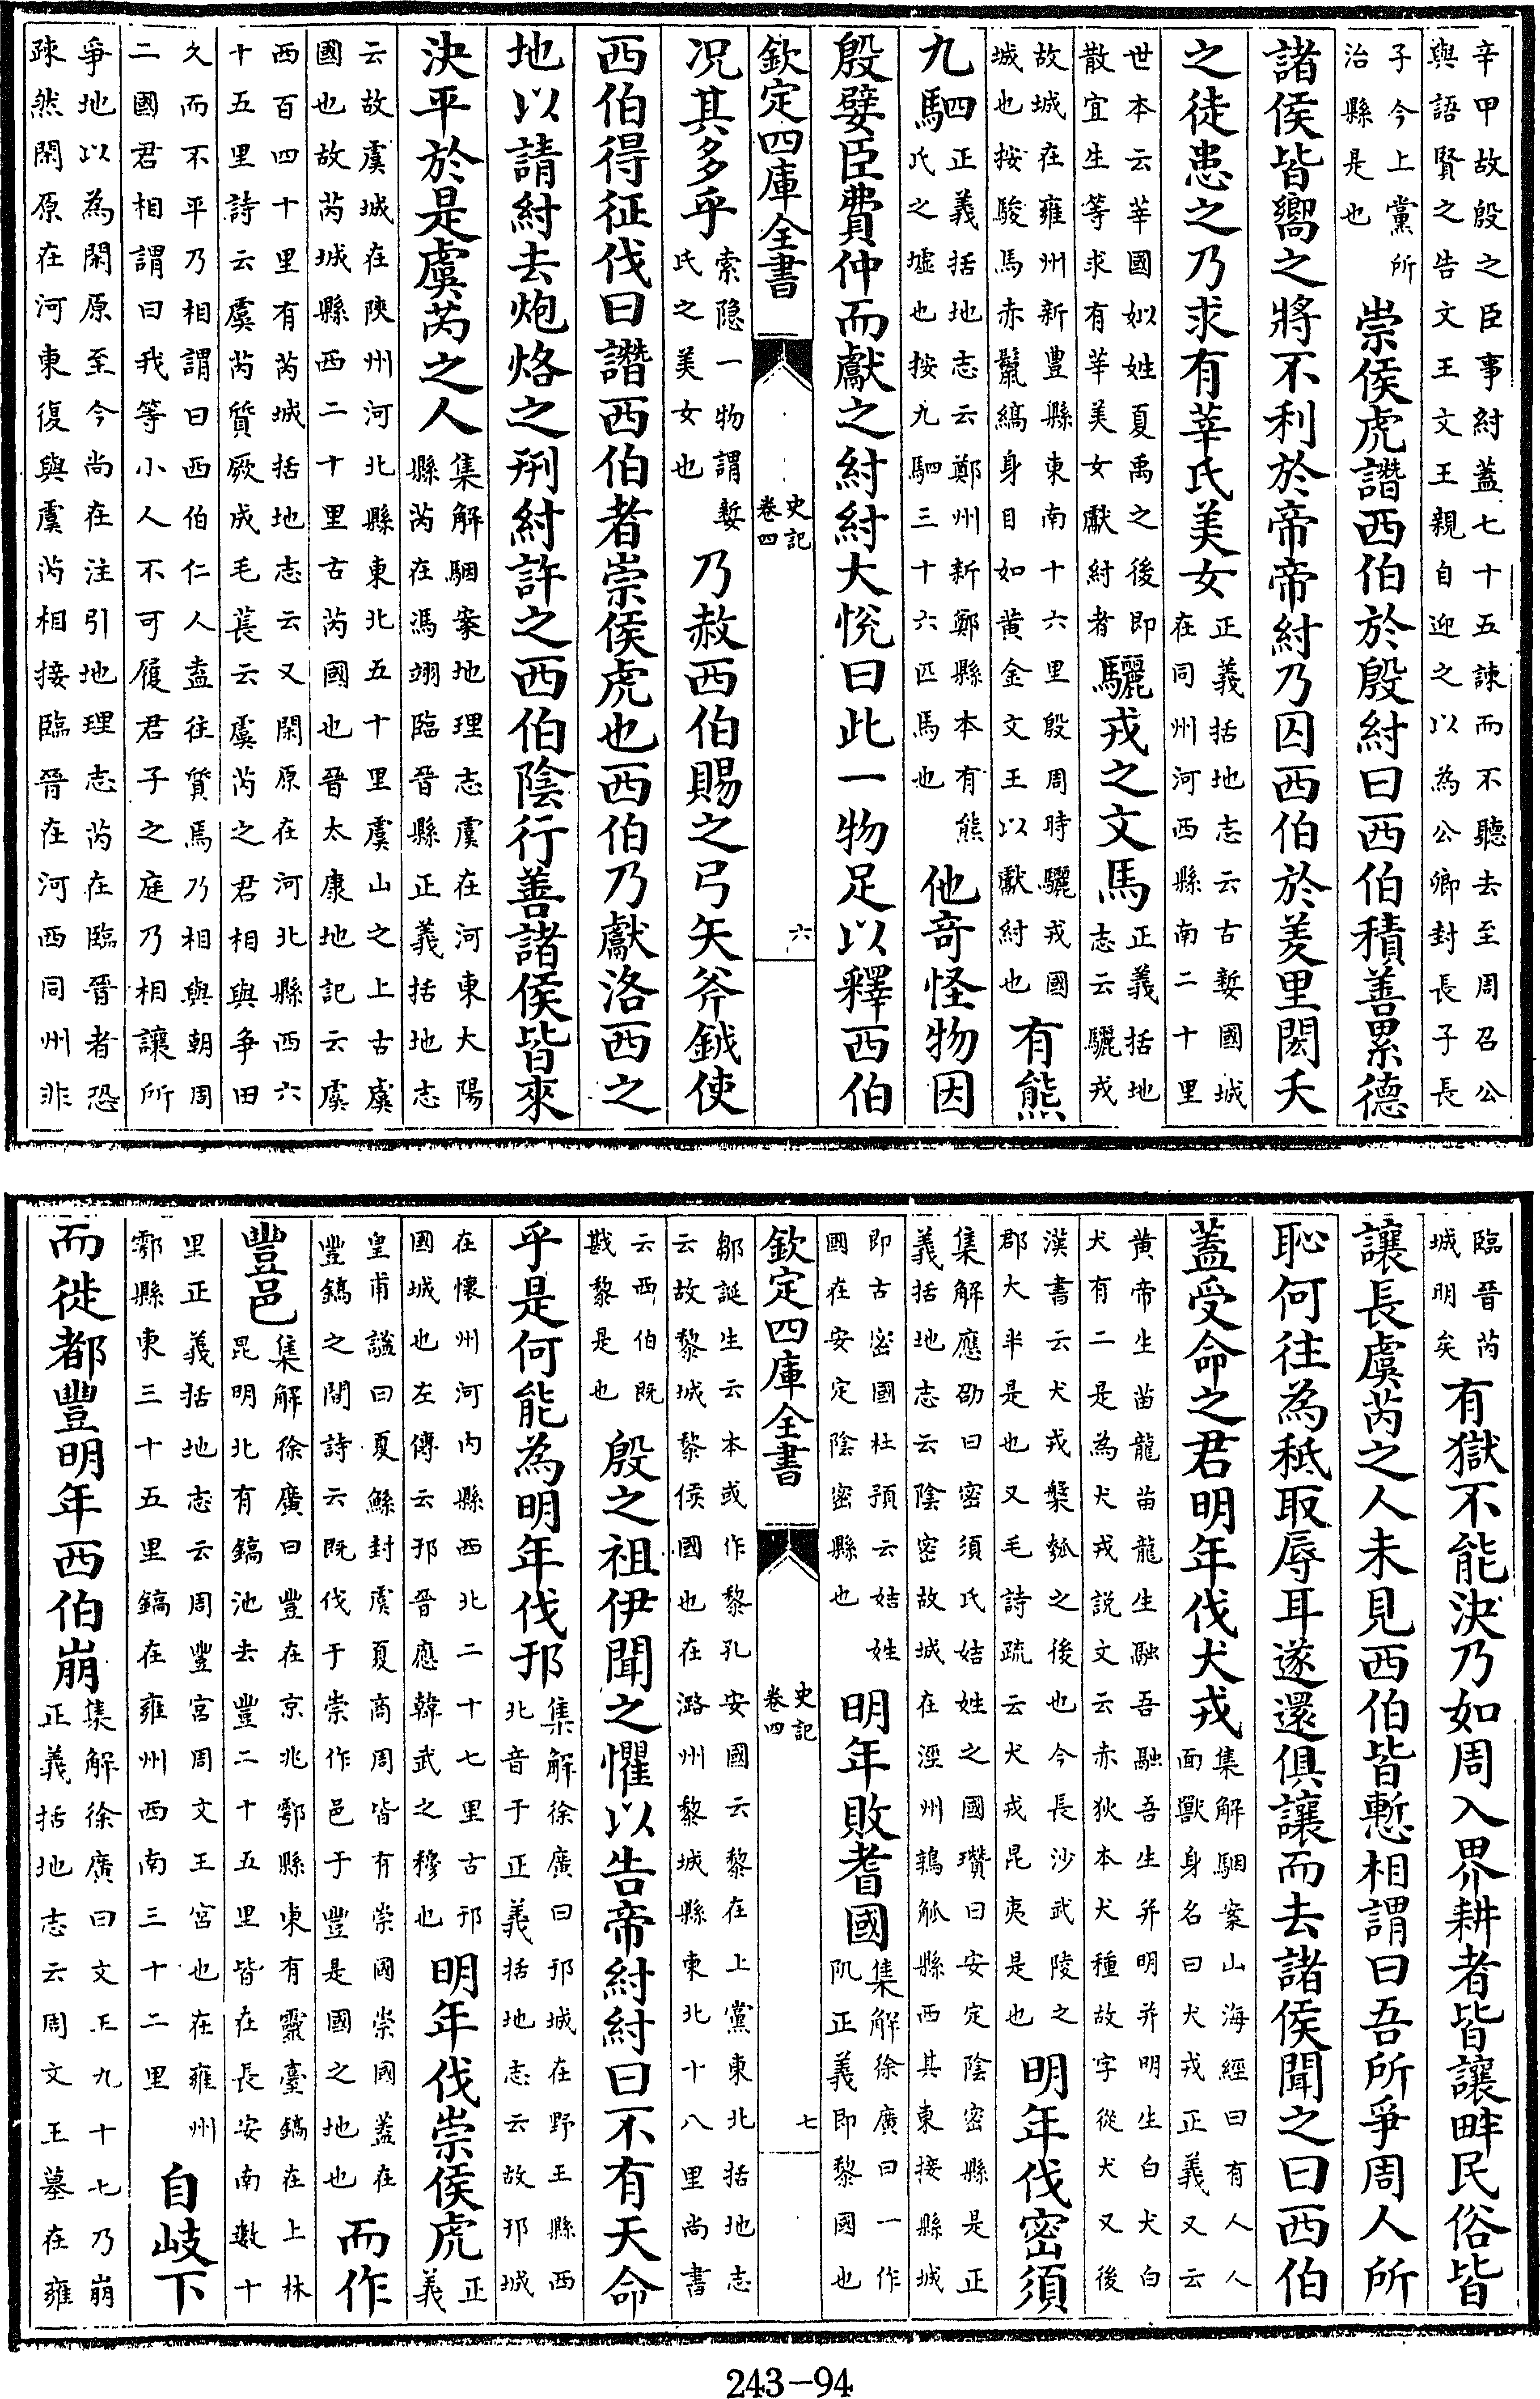 辛甲故殷之臣事紂蓋七十五諫而不聽去至周召公
與語賢之告文王文王親自迎之以為公卿封長子長
子今上黨所治縣是也崇侯虎譖西伯於殷紂曰西伯積善累德
諸侯皆嚮之將不利於帝帝紂乃囚西伯於羑里閎夭
之徒患之乃求有莘氏美女正義括地志云古㜪國城在同州河西縣南二十里
世本云莘國姒姓夏禹之後即散宜生等求有莘美女獻紂者驪戎之文馬正義括地志云驪戎
故城在雍州新豐縣東南十六里殷周時驪戎國城也按駿馬赤鬣縞身目如黄金文王以獻紂也有熊
九駟正義括地志云鄭州新鄭縣本有熊氏之墟也按九駟三十六匹馬也他奇怪物因
殷嬖臣費仲而獻之紂紂大悅曰此一物足以釋西伯
欽定四庫全書 史記卷四 六
况其多乎索隐一物謂㜪氏之美女也乃赦西伯賜之弓矢斧鉞使
西伯得征伐曰譖西伯者崇侯虎也西伯乃獻洛西之
地以請紂去炮烙之刑紂許之西伯陰行善諸侯皆來
決平於是虞芮之人集解駰案地理志虞在河東大陽縣芮在馮翊臨晉縣正義括地志
云故虞城在陜州河北縣東北五十里虞山之上古虞
國也故芮城縣西二十里古芮國也晉太康地記云虞
西百四十里有芮城括地志云又閑原在河北縣西六
十五里詩云虞芮質厥成毛萇云虞芮之君相與争田
久而不平乃相謂曰西伯仁人盍往質焉乃相與朝周
二國君相謂曰我等小人不可履君子之庭乃相讓所
爭地以為閑原至今尚在注引地理志芮在臨晉者恐
疎然閑原在河東復與虞芮相接臨晉在河西同州非
臨晉芮城明矣有獄不能決乃如周入界耕者皆讓畔民俗皆
讓長虞芮之人未見西伯皆慙相謂曰吾所爭周人所
恥何往為秪取辱耳遂還俱讓而去諸侯聞之曰西伯
蓋受命之君明年伐犬戎集解駰案山海經曰有人人面獸身名曰犬戎正義又云
黄帝生苗龍苗龍生融吾融吾生弁明弁明生白犬白
犬有二是為犬戎説文云赤狄本犬種故字從犬又後
漢書云犬戎槃瓠之後也今長沙武陵之郡大半是也又毛詩疏云犬戎昆夷是也明年伐密須
集解應劭曰密須氏姞姓之國瓚曰安定陰密縣是正
義括地志云陰密故城在涇州鶉觚縣西其東接縣城
即古密國杜預云姞姓國在安定陰密縣也明年敗耆國集解徐廣曰一作阢正義即黎國也
欽定四庫全書 史記卷四 七
鄒誕生云本或作黎孔安國云黎在上黨東北括地志
云故黎城黎侯國也在潞州黎城縣東北十八里尚書
云西伯既戡黎是也殷之祖伊聞之懼以告帝紂紂曰不有天命
乎是何能為明年伐邘集解徐廣曰邘城在野王縣西北音于正義括地志云故邘城
在懷州河内縣西北二十七里古邘國城也左傳云邘晉應韓武之穆也明年伐崇侯虎正義
皇甫謐曰夏鯀封虞夏商周皆有崇國崇國蓋在豐鎬之間詩云既伐于崇作邑于豐是國之地也而作
豐邑集解徐廣曰豐在京兆鄠縣東有靈臺鎬在上林昆明北有鎬池去豐二十五里皆在長安南數十
里正義括地志云周豐宮周文王宮也在雍州鄠縣東三十五里鎬在雍州西南三十二里自岐下
而徙都豐明年西伯崩集解徐廣曰文王九十七乃崩正義括地志云周文王墓在雍
243-94